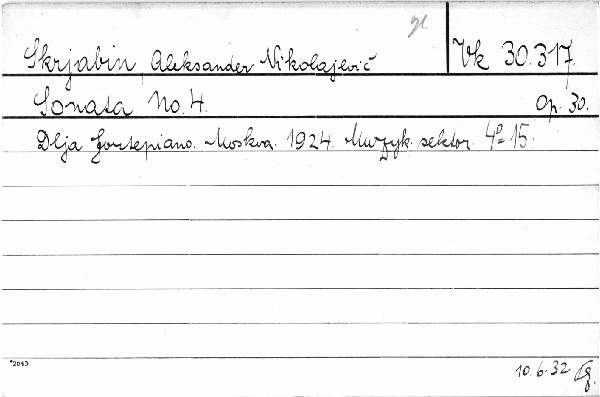 Skrjabin, Aleksander Nikolajevič
Vk 30.317.
Sonata No. 4. Op. 30.
Dlja fortepiano. Moskva. 1924. Muzyk. sektor. 4° 15.
*2043
10.6.32